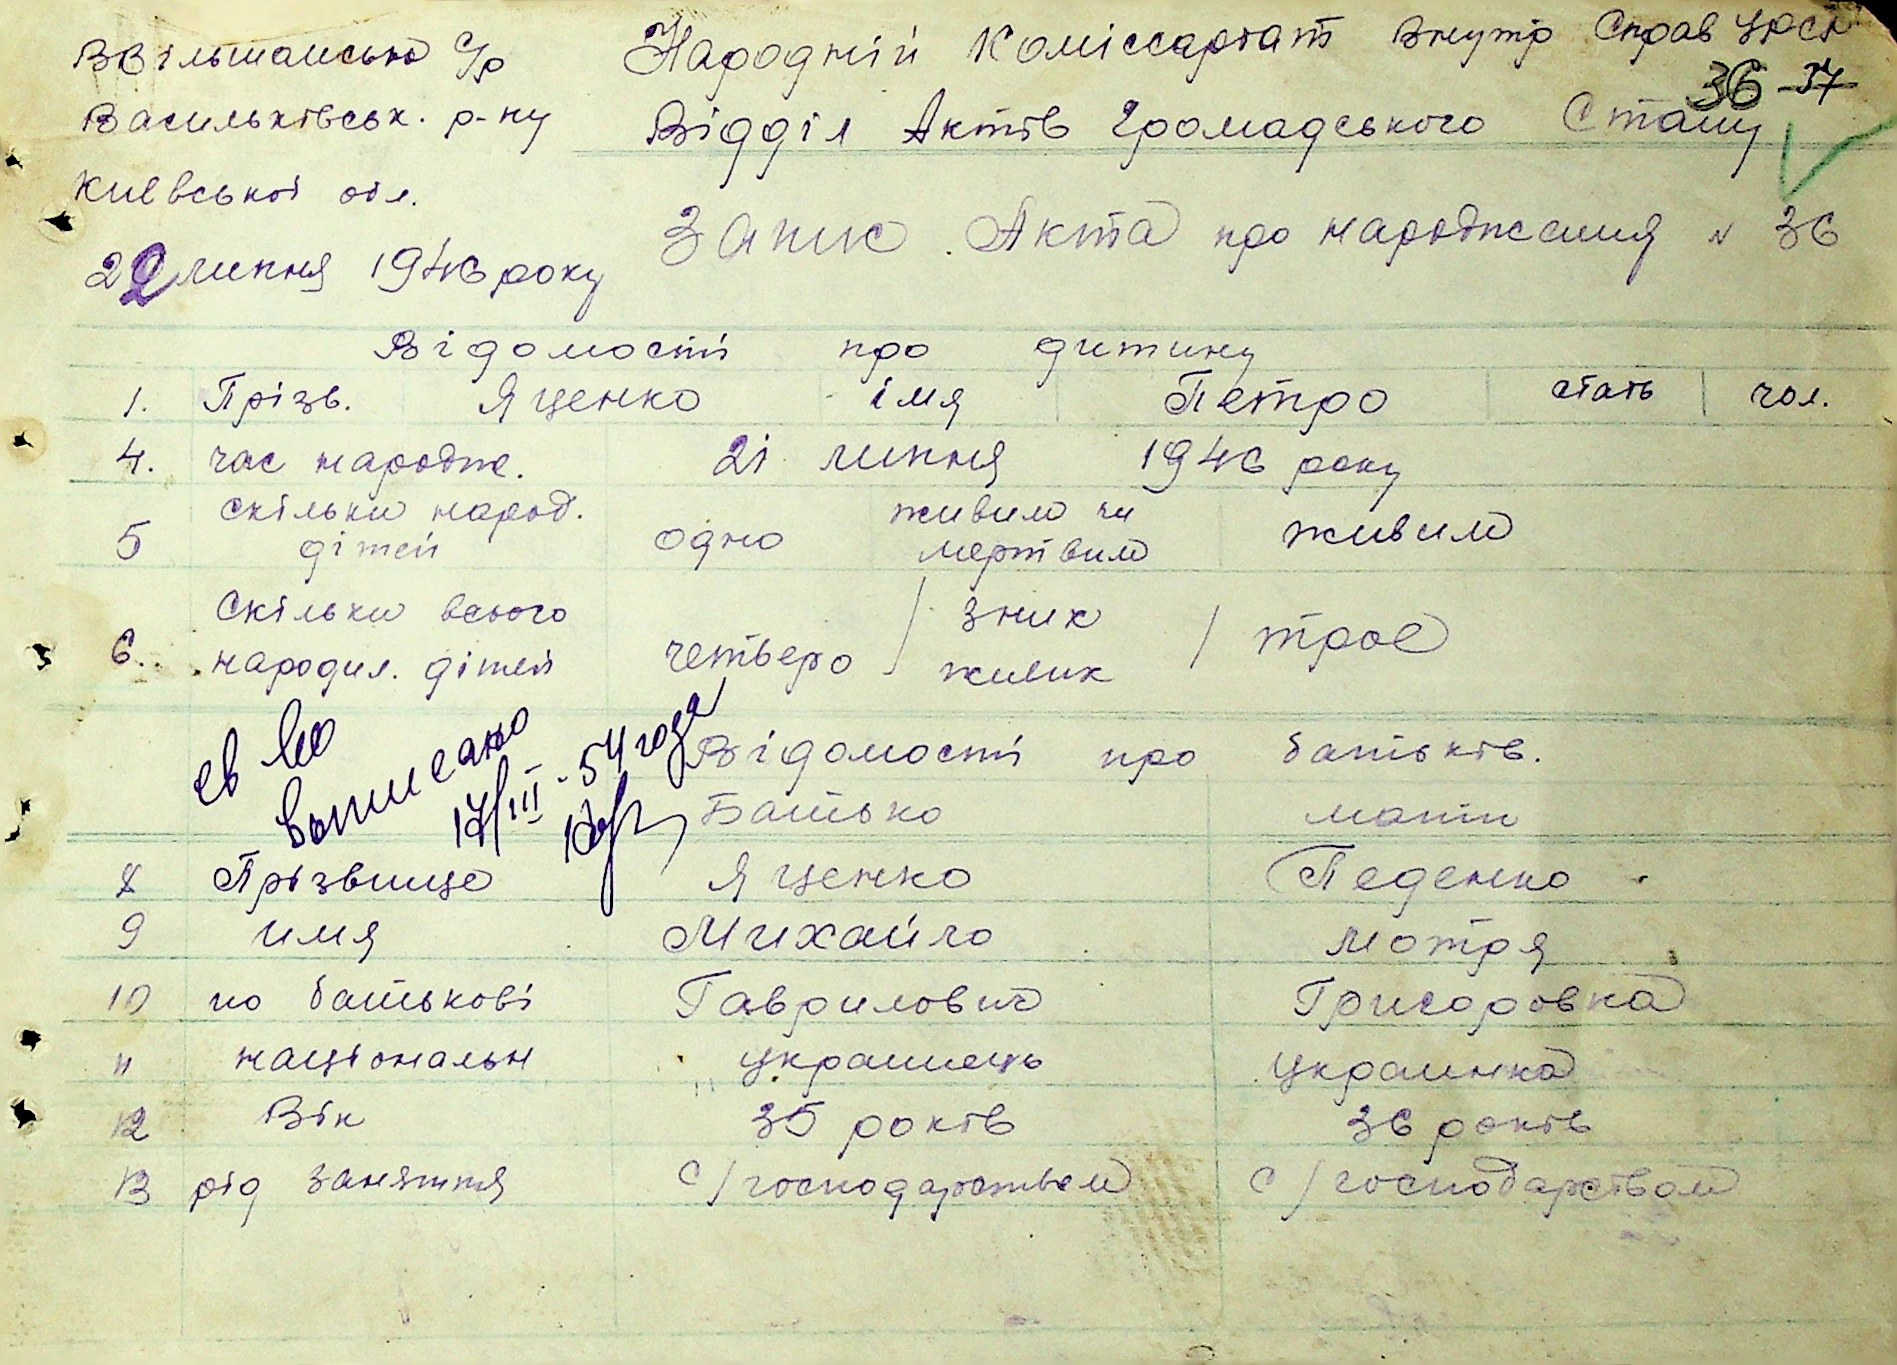 Вільшанська с/р
Васильківськ. р-ну
Київської обл.
22 липня 1946 року
Народній Коміссаріат Внутр Справ УРСР
36 37
Відділ Актів Громадського Стану
Запис Акта про народження N 36
Відомості про дитину
1. Прізв. Яценко імя Петро стать чол.
4. час народж. 21 липня 1946 року
5 скільки народ. дітей одно живим чи мертвим живим
6. Скільки всього народил. дітей четверо / з них живих / троє
св во
выписано
17/III-54 года
Відомості про батьків.
Батько мати
8 Прізвище Яценко Педенко
9 имя Михайло Мотря
10 по батькові Гаврилович Григоровна
11 національн украинець украинка
12 Вік 35 років 36 років
13 рід заняття с/господарством с/господарством